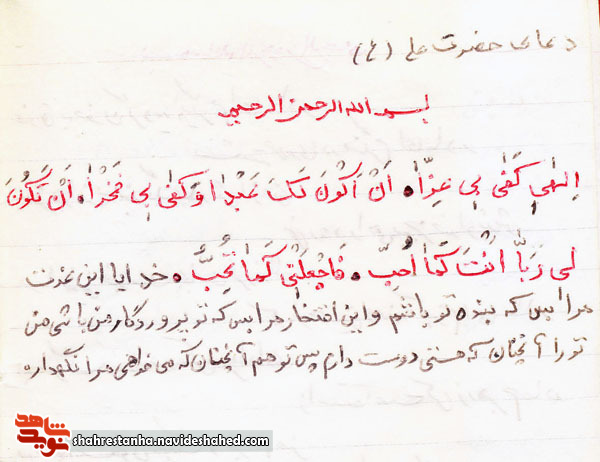 دعای حضرت علی (ع)
بسم الله الرحمن الرحیم
اِلهٰی کَفٰی بی عِزّاً اَنْ اَکُونَ لَکَ عَبْداً وَ کَفٰی بی فَخْراً اَنْ تَکُونَ
لی رَبّاً اَنْتَ کَمٰا اُحِبُّ فَاجْعَلْنی کَمٰا تُحِبُّ خدایا این عزت
مرا بس که بنده تو باشم و این افتخار مرا بس که تو پروردگار من باشی من
تو را آنچنان که هستی دوست دارم پس تو هم آنچنان که می خواهی مرا نگهدار
نوید شاهد
shahrestanha.navideshahed.com